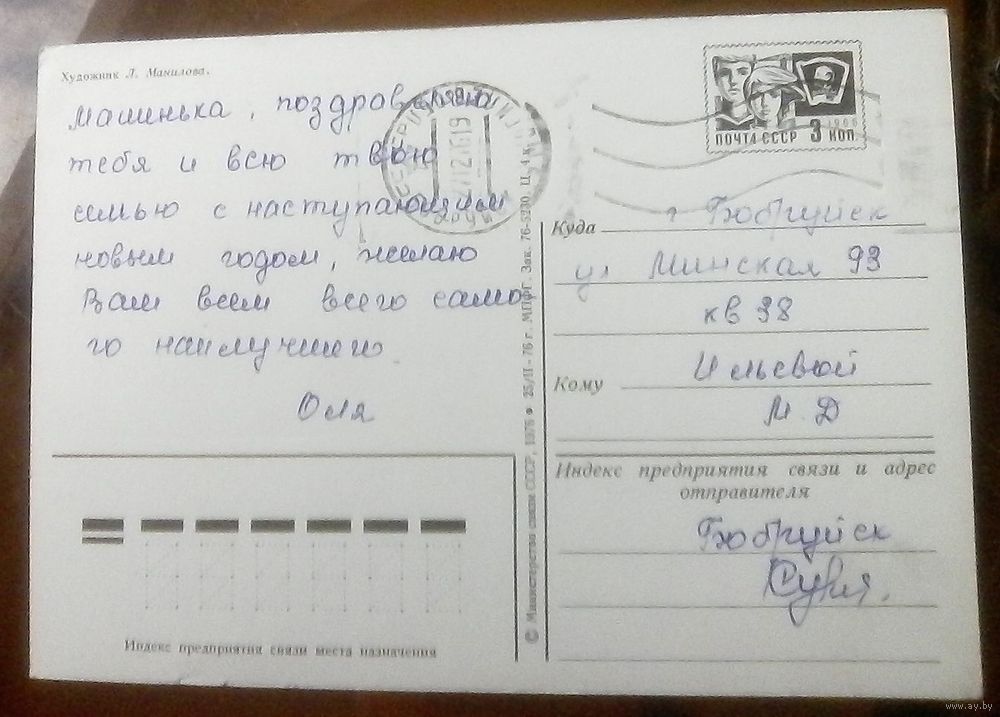 Художник Л. Манилова.
Машинька, поздравляю
тебя и всю твою
семью с наступающим
новым годом, желаю
Вам всем всего само
го наилучшего.
Оля
ПОЧТА СССР 3 КОП.
1966
Куда г Бобруйск
ул Минская 93
кв 38
Кому Ильевой
М. Д
Индекс предприятия связи и адрес
отправителя
Бобруйск
Индекс предприятия связи места назначения
© Министерство связи СССР, 1976 25/II-76 г. МПФГ. Зак. 76-5230. Ц. 4 к.
www.ay.by